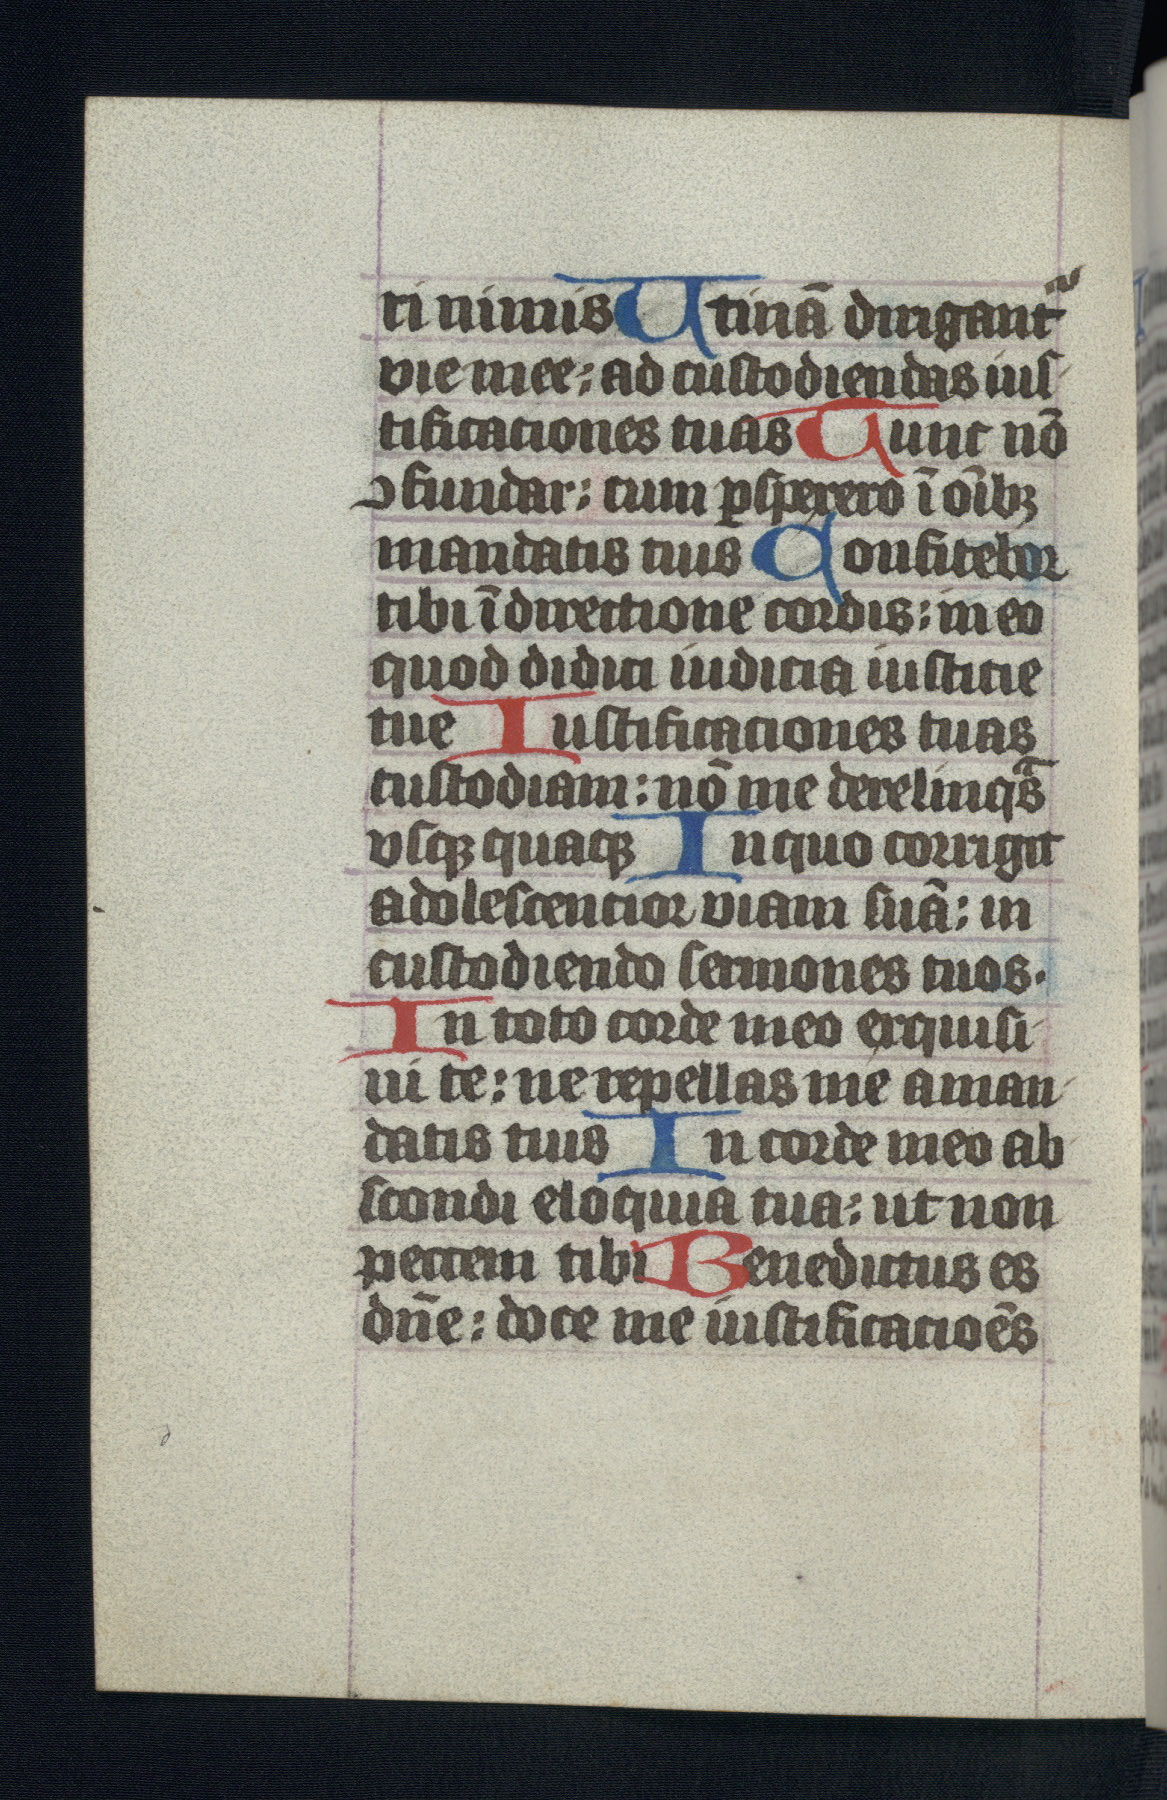 ri nimis Utinā dirigant᷑
vie mee: ad custodiendas ius
tificaciones tuas Tunc nō
ↄfundar: cum ꝓsperero ī oībꝫ
mandatis tuis Confitebor
tibi ī directione cordis: in eo
quod didici iudicia iusticie
tue Iustificaciones tuas
custodiam: nō me derelinqᵃs
usqꝫ quaqꝫ In quo corrigit
adolescencior viam suā: in
custodiendo sermones tuos.
In toto corde meo exquisi
ui te: ne repellas me a man
datis tuis In corde meo ab
scondi eloquia tua: ut non
peccem tibi Benedictus es
dn̄e: doce me iustificacioēs